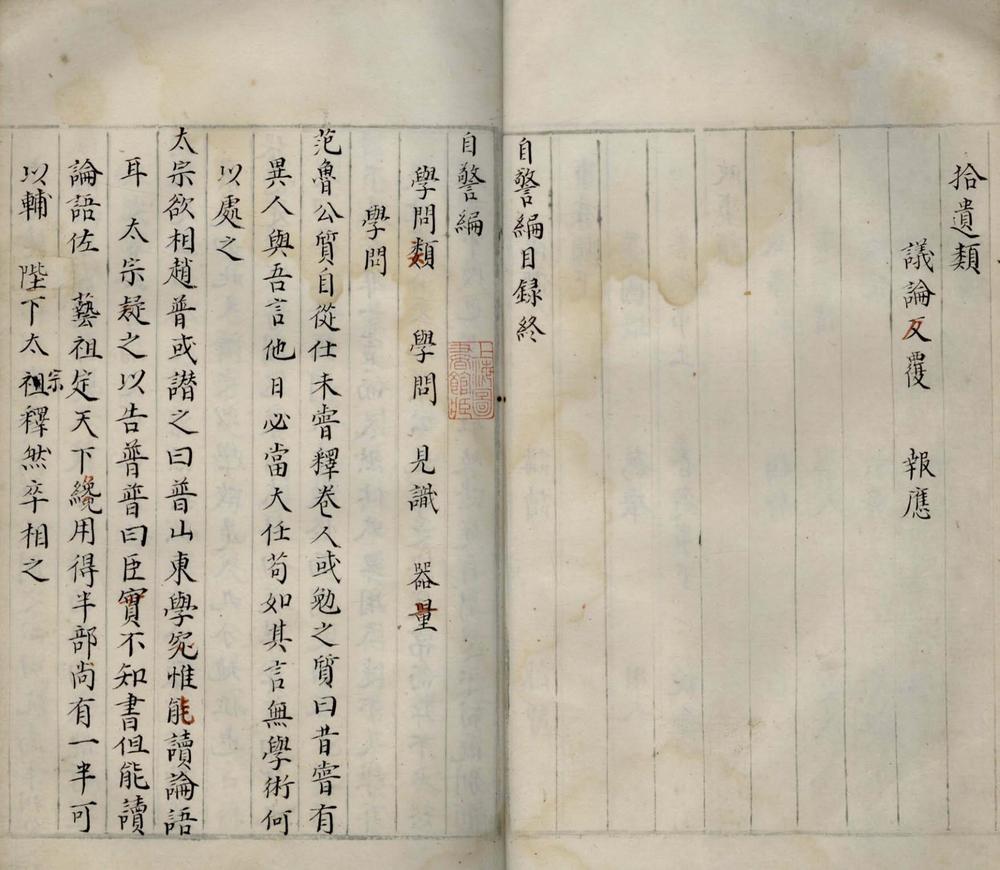 拾遺類
議論反覆 報應
自警編目録終
自警編
學問類 學問 見識 器量
學問
范魯公質自從仕未甞釋卷人或勉之質曰昔甞有
異人與吾言他日必當大任苟如其言無學術何
以處之
太宗欲相趙普或譖之曰普山東學究惟能讀論語
耳 太宗疑之以告普普曰臣實不知書但能讀
論語佐 藝祖定天下纔用得半部尚有一半可
以輔 陛下太祖宗釋然卒相之
上海圖書館藏